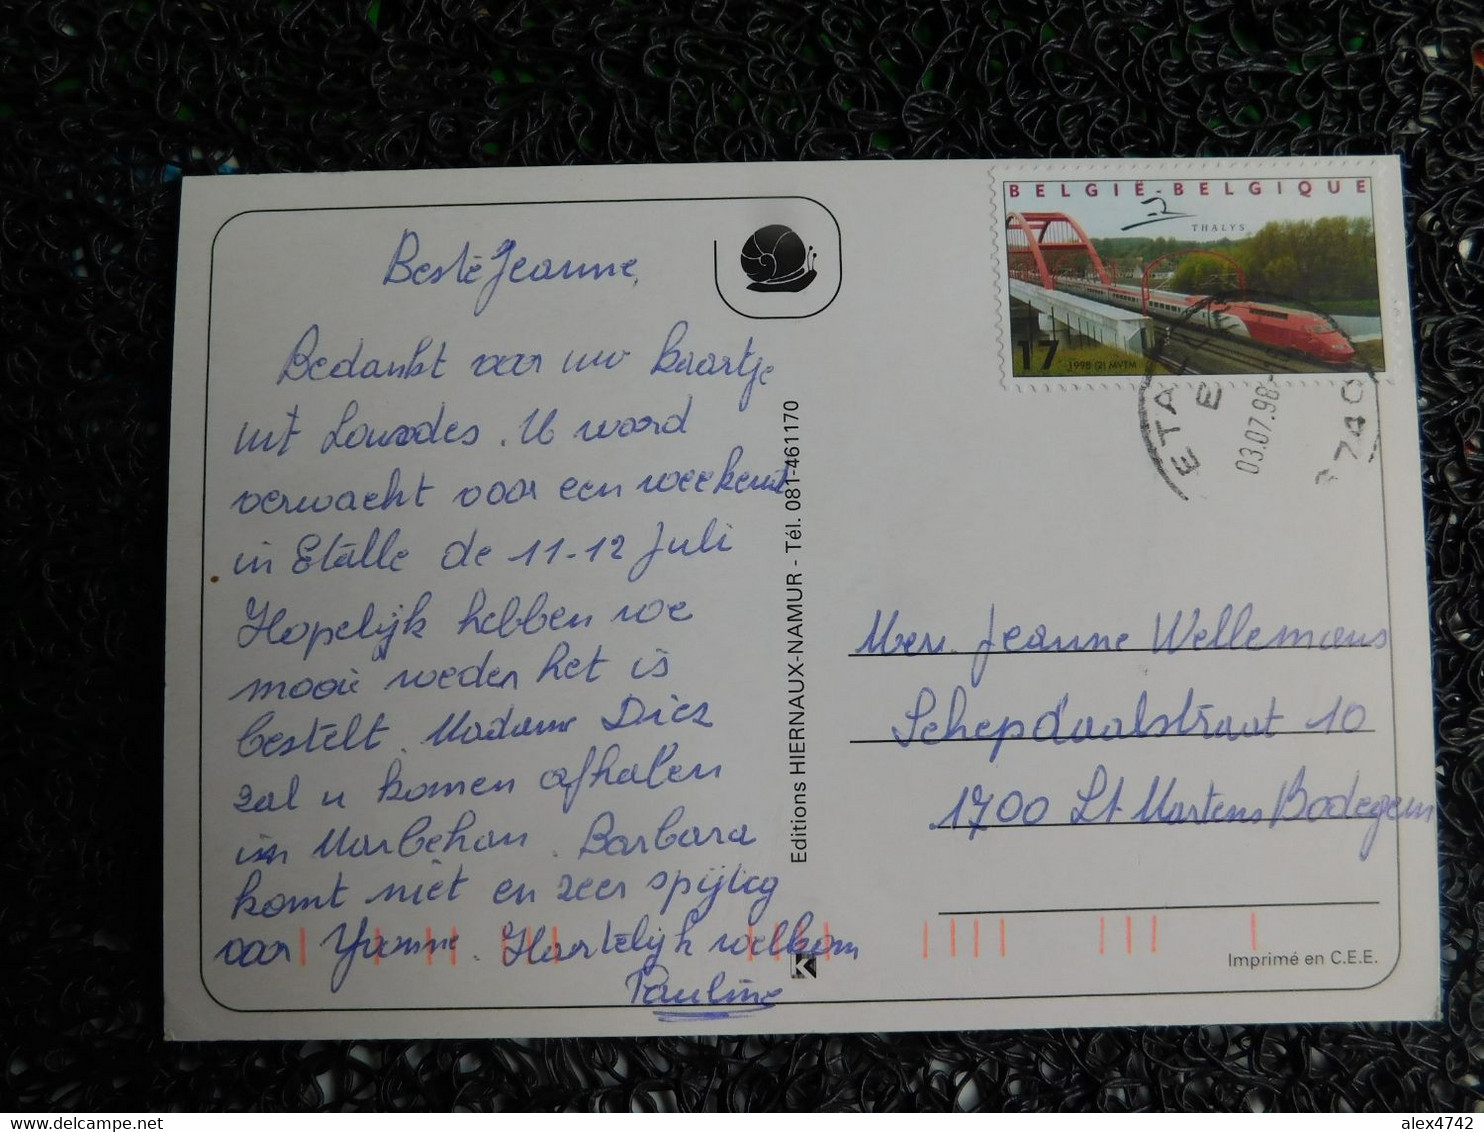 Beste Jeanne,
Bedankt voor uw kaartje
uit Lourdes. U word
verwacht voor een weekend
in Etalle de 11-12 Juli
Hopelijk hebben we
mooie weder het is
bestelt. Madame Dies
zal u komen afhalen
in Marbehan. Barbara
komt niet en zeer spijtig
voor Yvonne. Hartelijk welkom
Pauline
Editions HIERNAUX-NAMUR - Tél. 081-461170
BELGIË-BELGIQUE
THALYS
17
1998 (2) MVTM
ETALLE
03.07.98
6740
Mevr. Jeanne Wellemans
Schepdaalstraat 10
1700 St Martens Bodegem
Imprimé en C.E.E.
alex4742